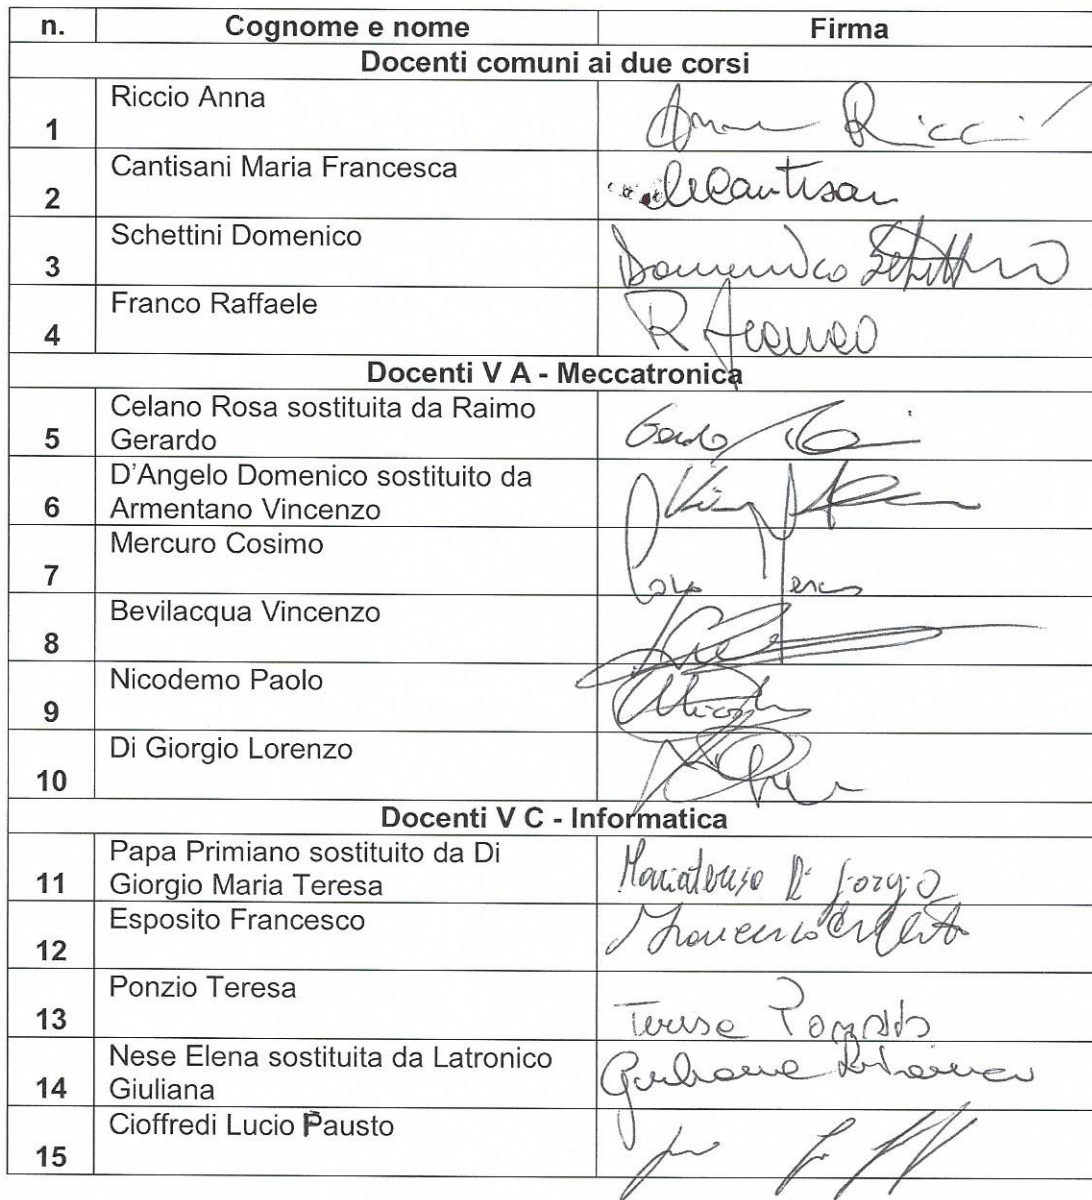 n. Cognome e nome Firma
Docenti comuni ai due corsi
Riccio Anna
1 Anna Riccio
Cantisani Maria Francesca
2 Cantisani
Schettini Domenico
3 Domenico Schettini
Franco Raffaele
4 R Franco
Docenti V A - Meccatronica
Celano Rosa sostituita da Raimo
5 Gerardo
D'Angelo Domenico sostituito da
6 Armentano Vincenzo
Mercuro Cosimo
7
Bevilacqua Vincenzo
8
Nicodemo Paolo
9
Di Giorgio Lorenzo
10
Docenti V C - Informatica
Papa Primiano sostituito da Di
11 Giorgio Maria Teresa Mariateresa Di Giorgio
Esposito Francesco
12 Francesco Esposito
Ponzio Teresa
13 Teresa Ponzio
Nese Elena sostituita da Latronico
14 Giuliana Giuliana Latronico
Cioffredi Lucio Pausto
15